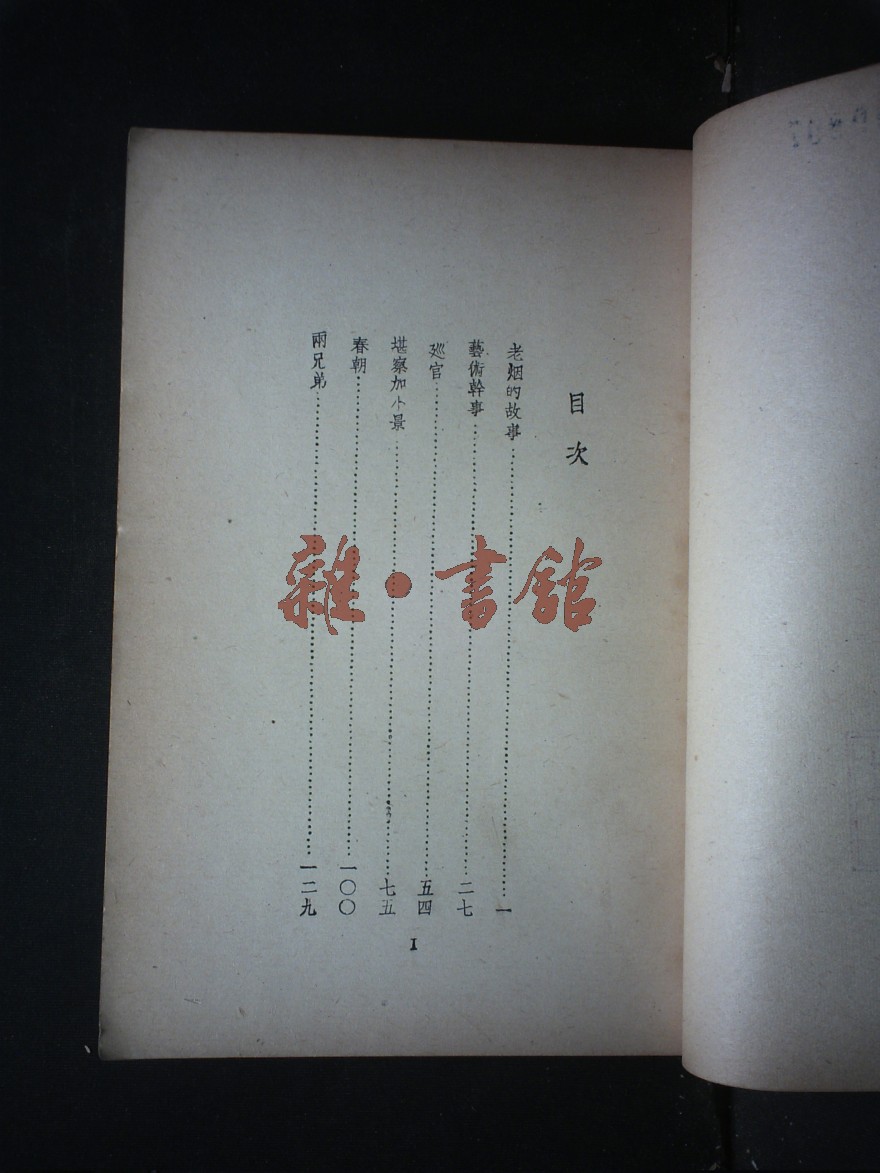 目次
老烟的故事 一
藝術幹事 二七
巡官 五四
堪察加小景 七五
春朝 一〇〇
兩兄弟 一二九
I
雜·書館